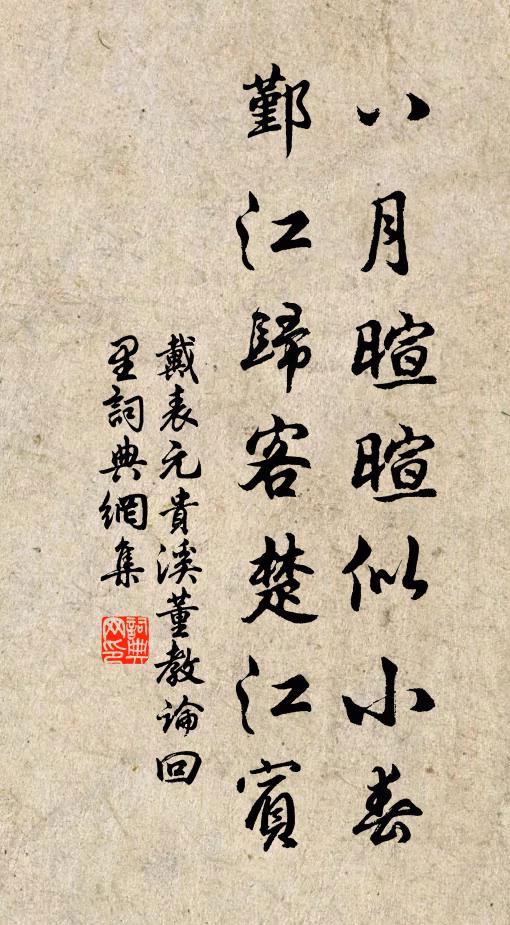 八月暄暄似小春
鄞江歸客楚江賓
戴表元貴溪董教論回
里詞典網集
詞典
网印